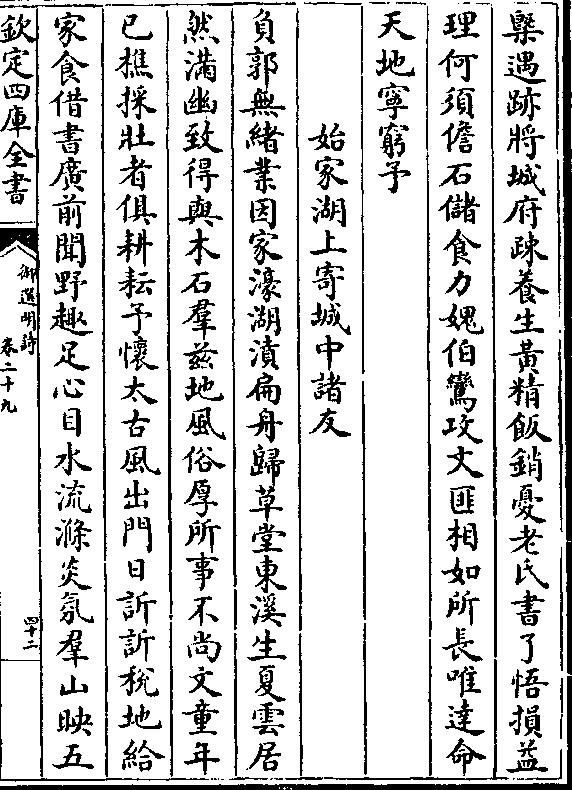 槩遇跡將城府疎養生黃精飯銷憂老氏書了悟損益
理何須儋石儲食力媿伯鸞攻文匪相如所長唯達命
天地寧窮予
始家湖上寄城中諸友
負郭無緒業因家濠湖濆扁舟歸草堂東溪生夏雲居
然滿幽致得與木石羣茲地風俗厚所事不尚文童年
已樵採壯者俱耕耘予懷太古風出門日訢訢稅地給
家食借書廣前聞野趣足心目水流滌炎氛羣山映五
欽定四庫全書
御選明詩
卷二十九
四十二